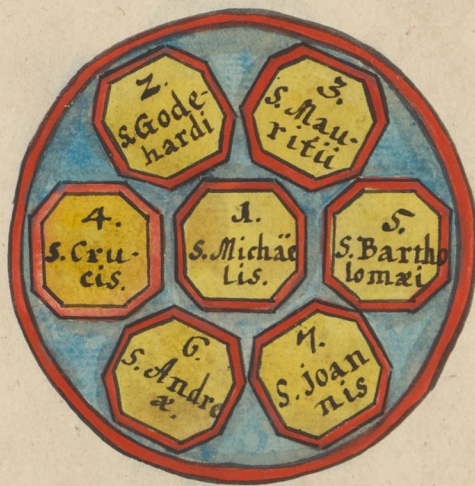 2.
S. Gode-
hardi
3.
S. Mau-
ritii
4.
S. Cru-
cis.
1.
S. Michäe
lis.
5.
S. Bartho
lomæi
6.
S. Andre
æ.
7.
S. Joan
nis